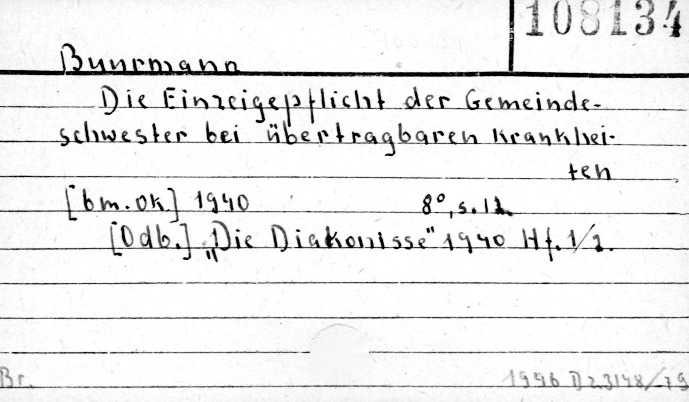 108134
Buurmann
Die Einzeigepflicht der Gemeinde-
schwester bei übertragbaren Krankhei-
ten
[bm. ok.] 1940 8°, s. 12.
[Odb.] „Die Diakonisse" 1940 Hf. 1/2.
Br. 1946 D 23148/79